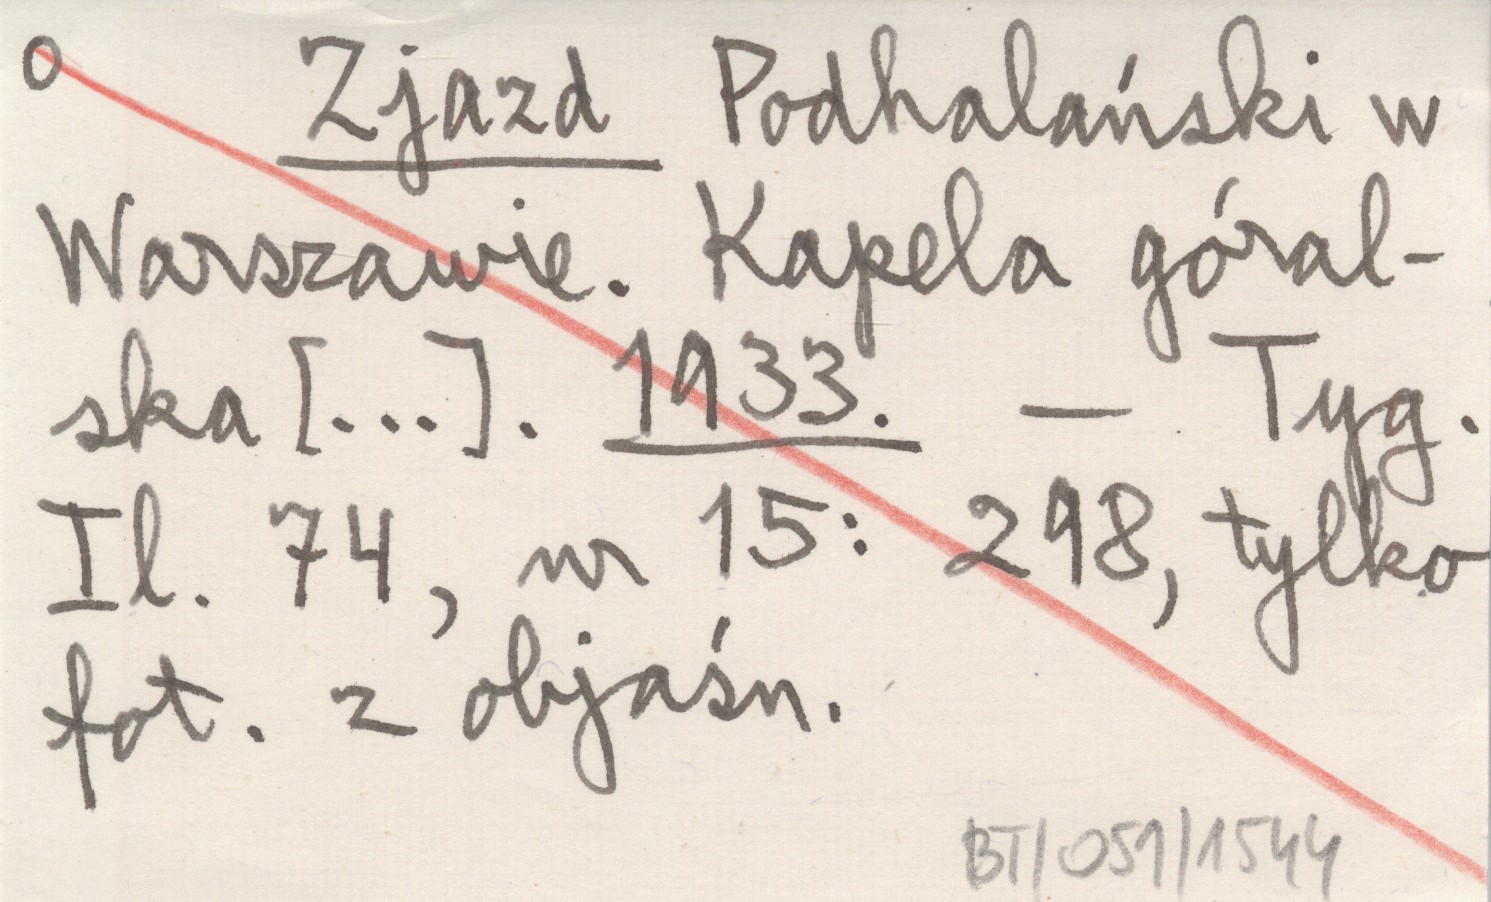 o Zjazd Podhalański w
Warszawie. Kapela góral-
ska [...]. 1933. — Tyg.
Il. 74, nr 15: 298, tylko
fot. z objaśn.
BT/051/1544